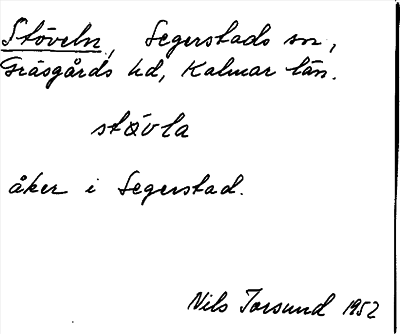 Stöveln, Segerstads sn,
Gräsgårds hd, Kalmar län.
støvla
åker i Segerstad.
Nils Torsund 1952